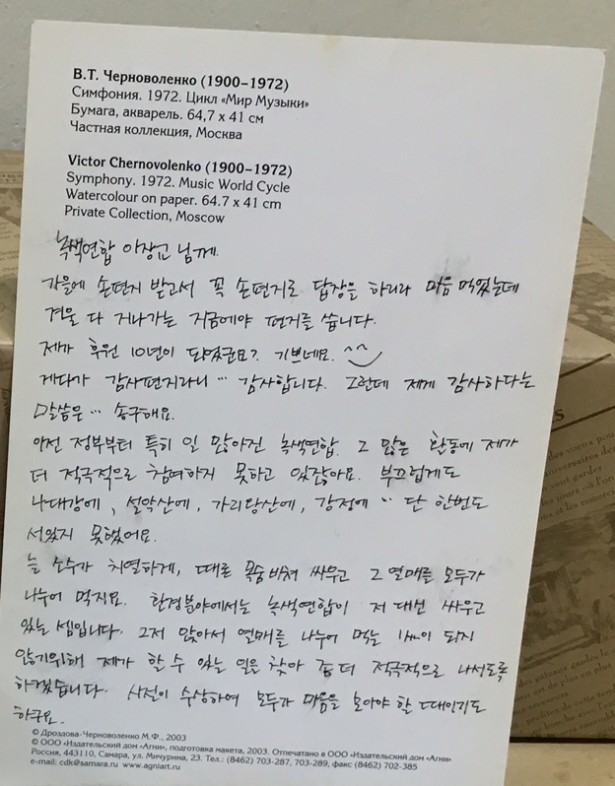 В.Т. Черноволенко (1900-1972)
Симфония. 1972. Цикл «Мир Музыки»
Бумага, акварель. 64,7 x 41 см
Частная коллекция, Москва
Victor Chernovolenko (1900-1972)
Symphony. 1972. Music World Cycle
Watercolour on paper. 64.7 x 41 cm
Private Collection, Moscow
녹색연합 이장고 님께.
가을에 손편지 받고서 꼭 손편지로 답장을 하리라 마음 먹었는데
겨울 다 지나가는 지금에야 편지를 씁니다.
제가 후원 10년이 되었군요? 기쁘네요. ^^
게다가 감사편지라니 … 감사합니다. 그런데 제게 감사하다는
말씀은 … 송구해요.
이전 정부부터 특히 일 많아진 녹색연합. 그 많은 활동에 제가
더 적극적으로 참여하지 못하고 있잖아요. 부끄럽게도
4대강에, 설악산에, 가리왕산에, 강정에 .. 단 한번도
서있지 못했어요.
늘 소수가 치열하게, 때론 목숨 바쳐 싸우고 그 열매를 모두가
나누어 먹지요. 환경분야에서는 녹색연합이 저 대신 싸우고
있는 셈입니다. 그저 앉아서 열매를 나누어 먹는 1人이 되지
않기위해 제가 할 수 있는 일을 찾아 좀 더 적극적으로 나서도록
하겠습니다. 시절이 수상하여 모두가 마음을 모아야 할 때인지도
하구요.
© Дроздова-Черноволенко М.Ф., 2003
© ООО «Издательский дом «Агни», подготовка макета, 2003. Отпечатано в ООО «Издательский дом «Агни»
Россия, 443110, Самара, ул. Мичурина, 23. Тел.: (8462) 703-287, 703-289, факс (8462) 702-385
e-mail: cdk@samara.ru www.agniart.ru